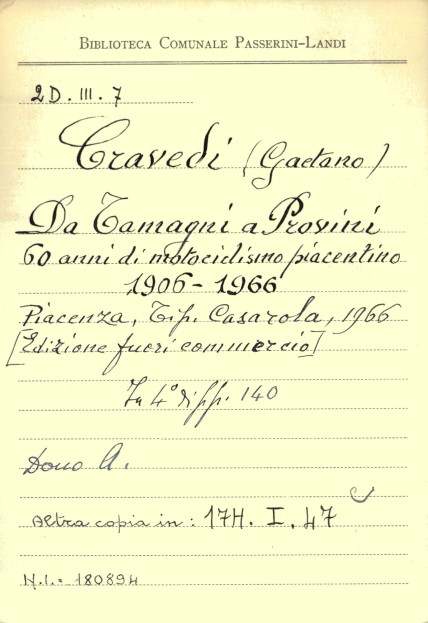 BIBLIOTECA COMUNALE PASSERINI-LANDI
2D. III. 7
Cravedi (Gaetano)
Da Tamagni a Provini
60 anni di motociclismo piacentino
1906-1966
Piacenza, Tip. Casarola, 1966
[Edizione fuori commercio]
In 4° di pp. 140
Dono A.
Altra copia in: 17H. I. 47
N.I.= 180894